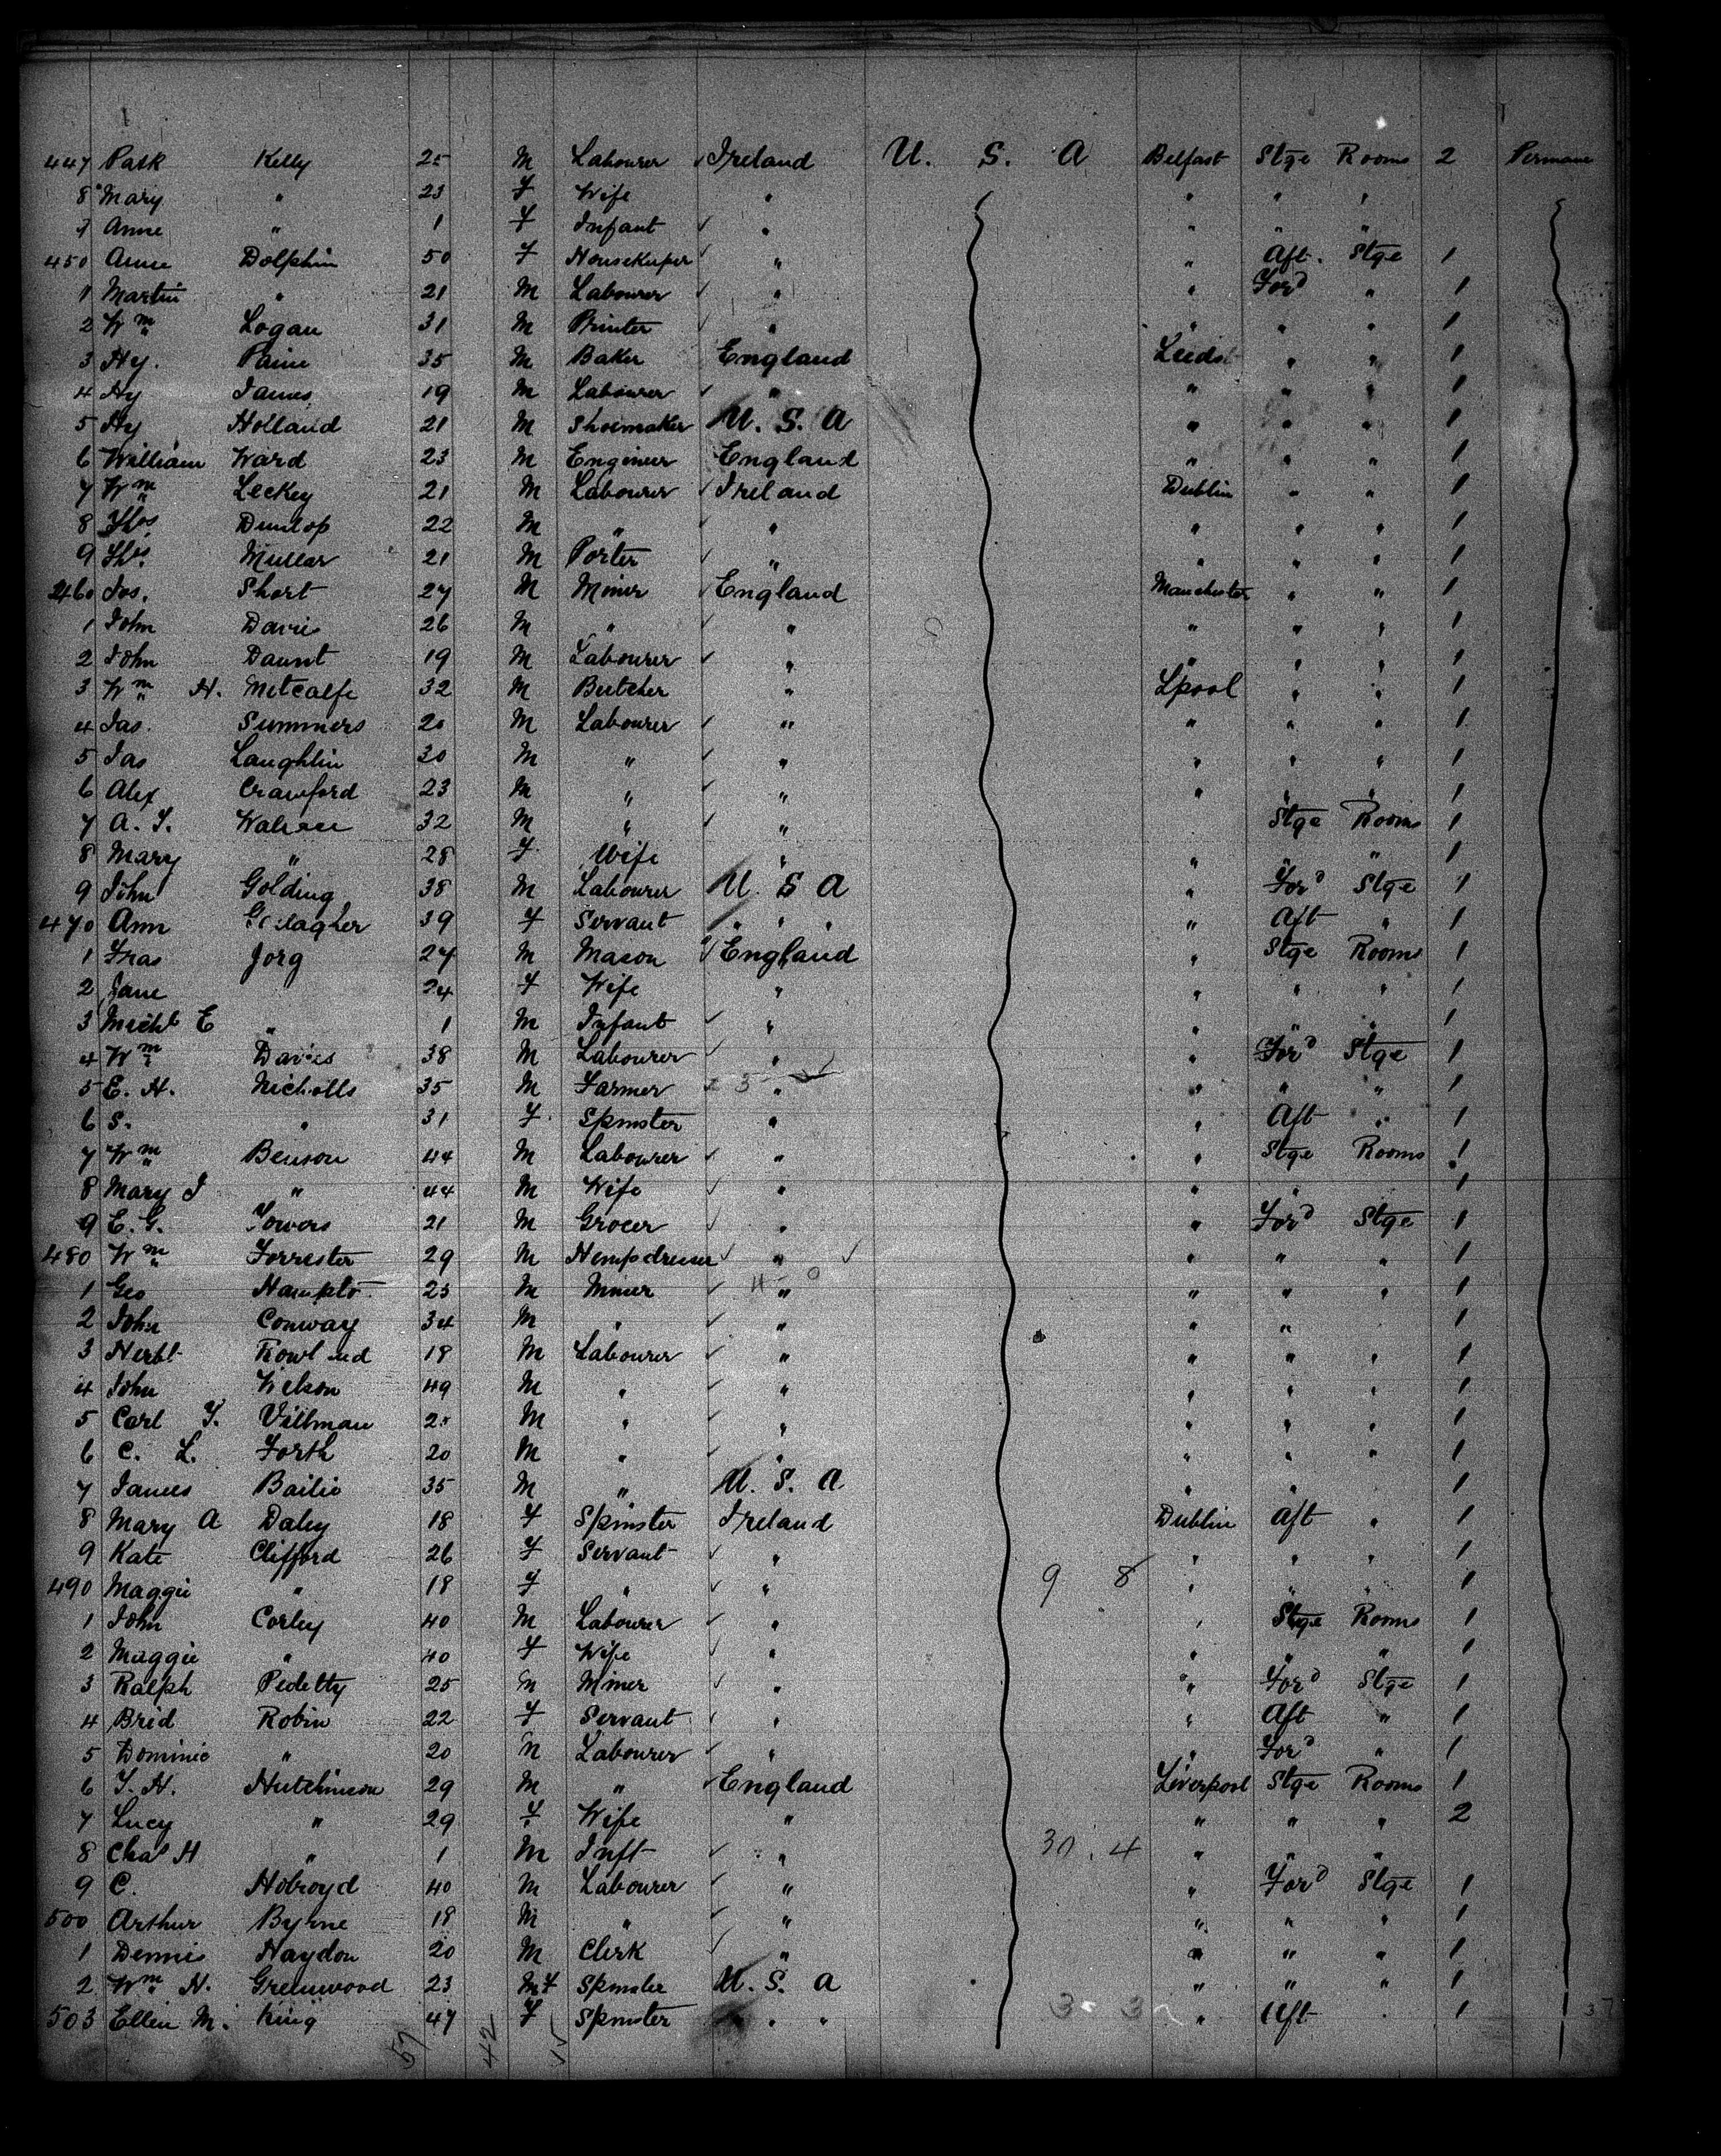 447 Patk Kelly 25 M Labourer Ireland U. S. A Belfast Stge Rooms 2 Permane
8 Mary " 23 F Wife " " " "
9 Anne " 1 F Infant " " " "
450 Anne Dolphin 50 F Housekeeper " " Aft. Stge 1
1 Martin " 21 M Labourer " " Ford " 1
2 Wm Logan 31 M Printer " " " " 1
3 Hy. Paine 35 M Baker England Leeds " " 1
4 Hy James 19 M Labourer " " " " 1
5 Hy Holland 21 M Shoemaker U. S. A " " " 1
6 William Ward 23 M Engineer England " " " 1
7 Wm Leckey 21 M Labourer Ireland Dublin " " 1
8 Thos Dunlop 22 M " " " " " 1
9 Thos Mullar 21 M Porter " " " " 1
460 Jos. Short 27 M Miner England Manchester " " 1
1 John Davis 26 M " " " " " 1
2 John Daunt 19 M Labourer " " " " 1
3 Wm H. Metcalfe 32 M Butcher " Lpool " " 1
4 Jas. Summers 20 M Labourer " " " " 1
5 Jas Laughlin 30 M " " " " " 1
6 Alex Crawford 23 M " " " " " 1
7 A. T. 32 M " " Stge Rooms 1
8 Mary " 28 F Wife " " " " 1
9 John Golding 38 M Labourer U. S A " Ford Stge 1
470 Ann Gallagher 39 F Servant " " " " Aft " 1
1 Fras Jorg 27 M Mason England " Stge Rooms 1
2 Jane 24 F Wife " " " " 1
3 Michl E " 1 M Infant " " " " 1
4 Wm Davies 38 M Labourer " " Ford Stge 1
5 E. H. Nicholls 35 M Farmer " " " " 1
6 S. " 31 F Spinster " " Aft " 1
7 Wm Benson 44 M Labourer " " Stge Rooms 1
8 Mary J " 44 M Wife " " " 1
9 E. G. Towers 21 M Grocer " " Ford Stge 1
480 Wm Forrester 29 M Hempdresser " " " " 1
1 Geo 23 M Miner " " " " 1
2 John Conway 34 M " " " " 1
3 Herbt Rowland 18 M Labourer " " " " 1
4 John Wilson 49 M " " " " " 1
5 Carl T. Villman M " " " " " 1
6 C. L. Forth 20 M " " " " " 1
7 James Bailie 35 M " U. S. A " " 1
8 Mary A Daley 18 F Spinster Ireland Dublin Aft " 1
9 Kate Clifford 26 F Servant " " " " 1
490 Maggie " 18 F " " 9 8 " " " 1
1 John Corley 40 M Labourer " " Stge Rooms 1
2 Maggie " 40 F Wife " " " " 1
3 Ralph Pedelty 25 M Miner " " Ford Stge 1
4 Brid Robin 22 F Servant " " Aft " 1
5 Dominic " 20 M Labourer " " Ford " 1
6 T. H. Hutchinson 29 M " England Liverpool Stge Rooms 1
7 Lucy " 29 F Wife " " " " 2
8 Chas H " 1 M Inft " 30. 4 " " "
9 C. Holroyd 40 M Labourer " " Ford Stge 1
500 Arthur Byrne 18 M " " " " " 1
1 Dennis Haydon 20 M Clerk " " " " 1
2 Wm H. Greenwood 23 M F Spinster U. S. A " " " 1
503 Ellen M. King 47 F Spinster " " " Aft 1
57 42 15